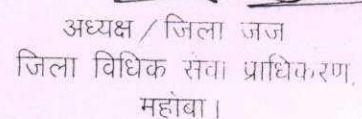 अध्यक्ष / जिला जज
जिला विधिक सेवा प्राधिकरण,
महोबा।